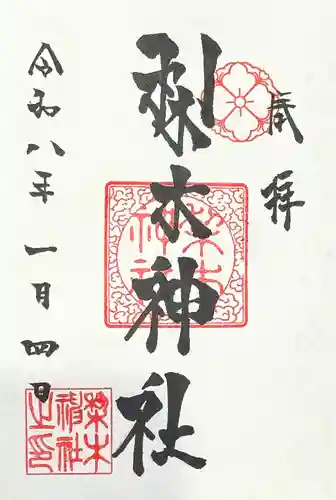 奉拝
梨木神社
梨木
神社
令和八年一月四日
梨木
神社
之印